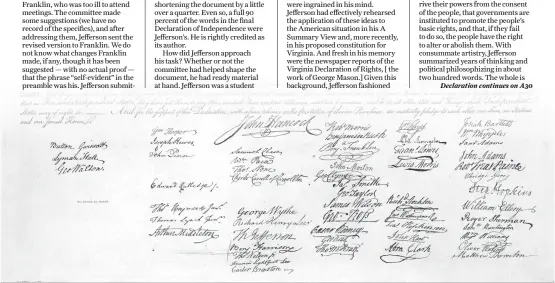 Franklin, who was too ill to attend
meetings. The committee made
some suggestions (we have no
record of the specifics), and after
addressing them, Jefferson sent the
revised version to Franklin. We do
not know what changes Franklin
made, if any, though it has been
suggested — with no actual proof —
that the phrase "self-evident" in the
preamble was his. Jefferson submit-
shortening the document by little
over a quarter. Even so, a full 90
percent of the words in the final
Declaration of Independence were
Jefferson's. He is rightly credited as
its author.
How did Jefferson approach
his task? Whether or not the
committee had helped shape the
document, he had ready material
at hand. Jefferson was a student
were ingrained in his mind.
Jefferson had effectively rehearsed
the application of these ideas to
the American situation in his A
Summary View and, more recently,
in his proposed constitution for
Virginia. And fresh in his memory
were the newspaper reports of the
Virginia Declaration of Rights, [ the
work of George Mason.] Given this
background, Jefferson fashioned
rive their powers from the consent
of the people, that governments are
instituted to promote the people's
basic rights, and that, if they fail
to do so, the people have the right
to alter or abolish them. With
consummate artistry, Jefferson
summarized years of thinking and
political philosophizing in about
two hundred words. The whole is
Declaration continues on A30
John Hancock
Button Gwinnett
Lyman Hall
Geo Walton.
Wm Hooper
Joseph Hewes,
John Penn
Edward Rutledge
Thos Heyward Junr.
Thomas Lynch Junr.
Arthur Middleton
Samuel Chase
Wm Paca
Thos Stone
Charles Carroll of Carrollton
George Wythe
Richard Henry Lee
Th Jefferson
Benj Harrison
Thos Nelson jr.
Francis Lightfoot Lee
Carter Braxton
Robt Morris
Benjamin Rush
Benj Franklin
John Morton
Geo Clymer
Jas Smith
Geo Taylor
James Wilson
Geo. Ross
Caesar Rodney
Geo Read
Tho M:Kean
Wm Floyd
Phil. Livingston
Frans Lewis
Lewis Morris
Richd Stockton
Jno Witherspoon
Fras Hopkinson
John Hart
Abra Clark
Josiah Bartlett
Wm Whipple
Saml Adams
John Adams
Robt Treat Paine
Elbridge Gerry
Step Hopkins
William Ellery
Roger Sherman
Saml Huntington
Wm Williams
Oliver Wolcott
Matthew Thornton